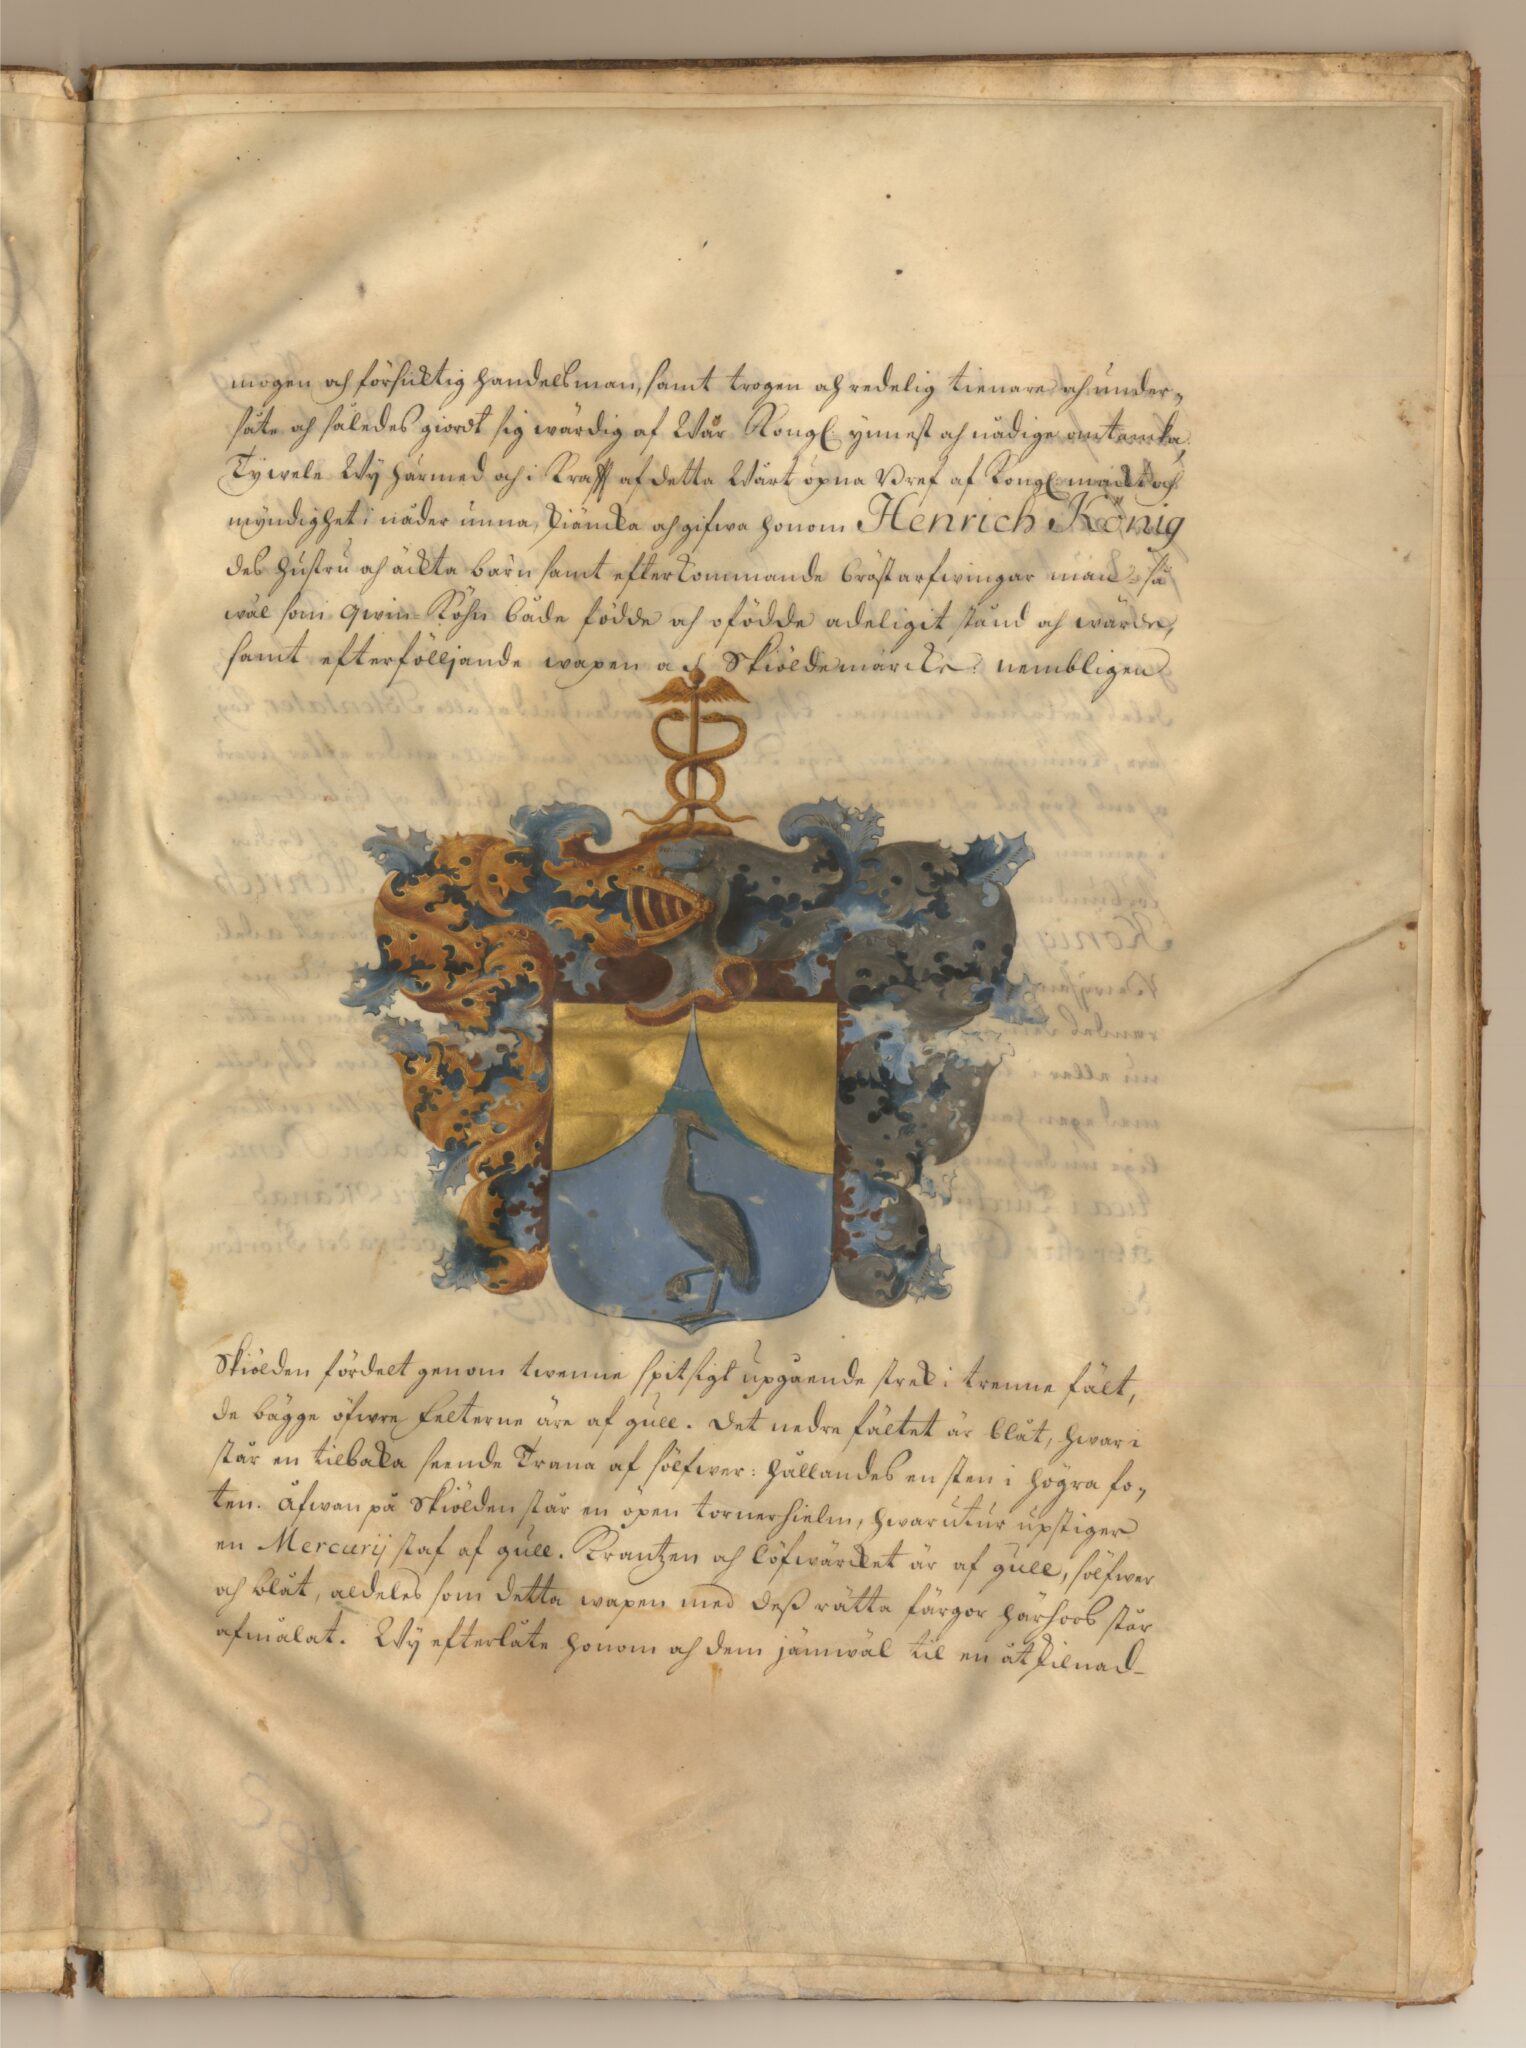 mogen och försicktig handelsman, samt trogen och redelig tienare och under-
såte och således giordt sig wärdig af Wår Kongl: ynnest och nådige omtancka,
Ty wele Wy härmed och i Krafft af detta Wårt öpna Bref af Kongl: mackt och
myndighet i nåder unna, skiäncka och gifwa honom Henrich König
des hustru och äckta barn samt efterkommande bröstarfwingar man- så
wäl som qwin-Köhn både födde och ofödde adeligit stånd och wärde,
samt efterfölljande wapen och Skiöldemärcke: nembligen
Skiölden fördelt genom twenne spitsigt upgående streck i trenne fält,
de bägge öfwre Felterne äre af gull. Det nedre fältet är blåt, hwari
står en tilbaka seende Trana af sölfwer: hållandes en sten i högra fo-
ten. Åfwan på Skiölden står en öpen tornerhielm, hwarutur upstiger
en Mercurij staf af gull. Krantzen och löfwärcket är af gull, sölfwer
och blåt, aldeles som detta wapen med deß rätta färgor härhoos står
afmålat. Wy efterlåte honom och dem jämwäl til en åtskilnad-